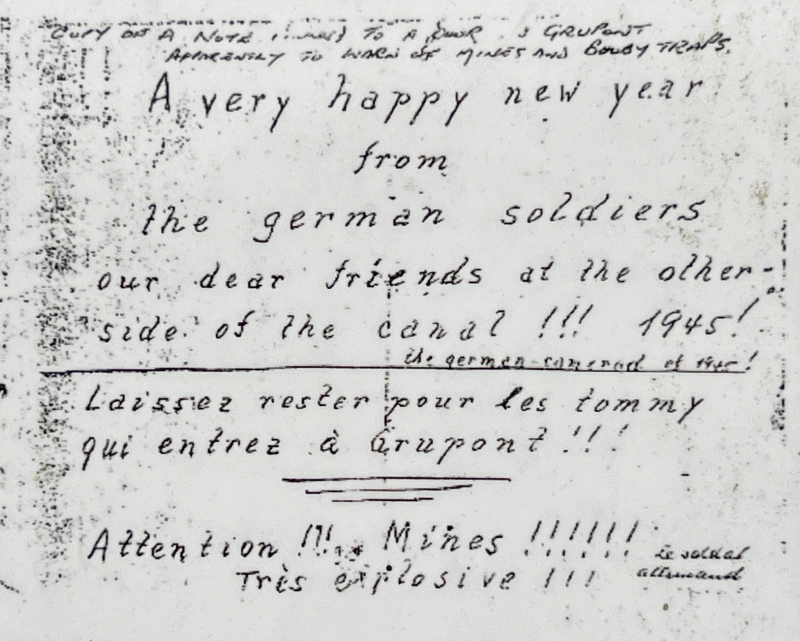 COPY OF A NOTE PINNED TO A DOOR GRUPONT
APPARENTLY TO WARN OF MINES AND BOOBY TRAPS.
A very happy new year
from
the german soldiers
our dear friends at the other-
side of the canal !!! 1945!
the german camerad of 1945!
Laissez rester pour les tommy
qui entrez à Grupont !!!
Attention !!! Mines !!!!!!
Très explosive !!!
Le soldat
allemand